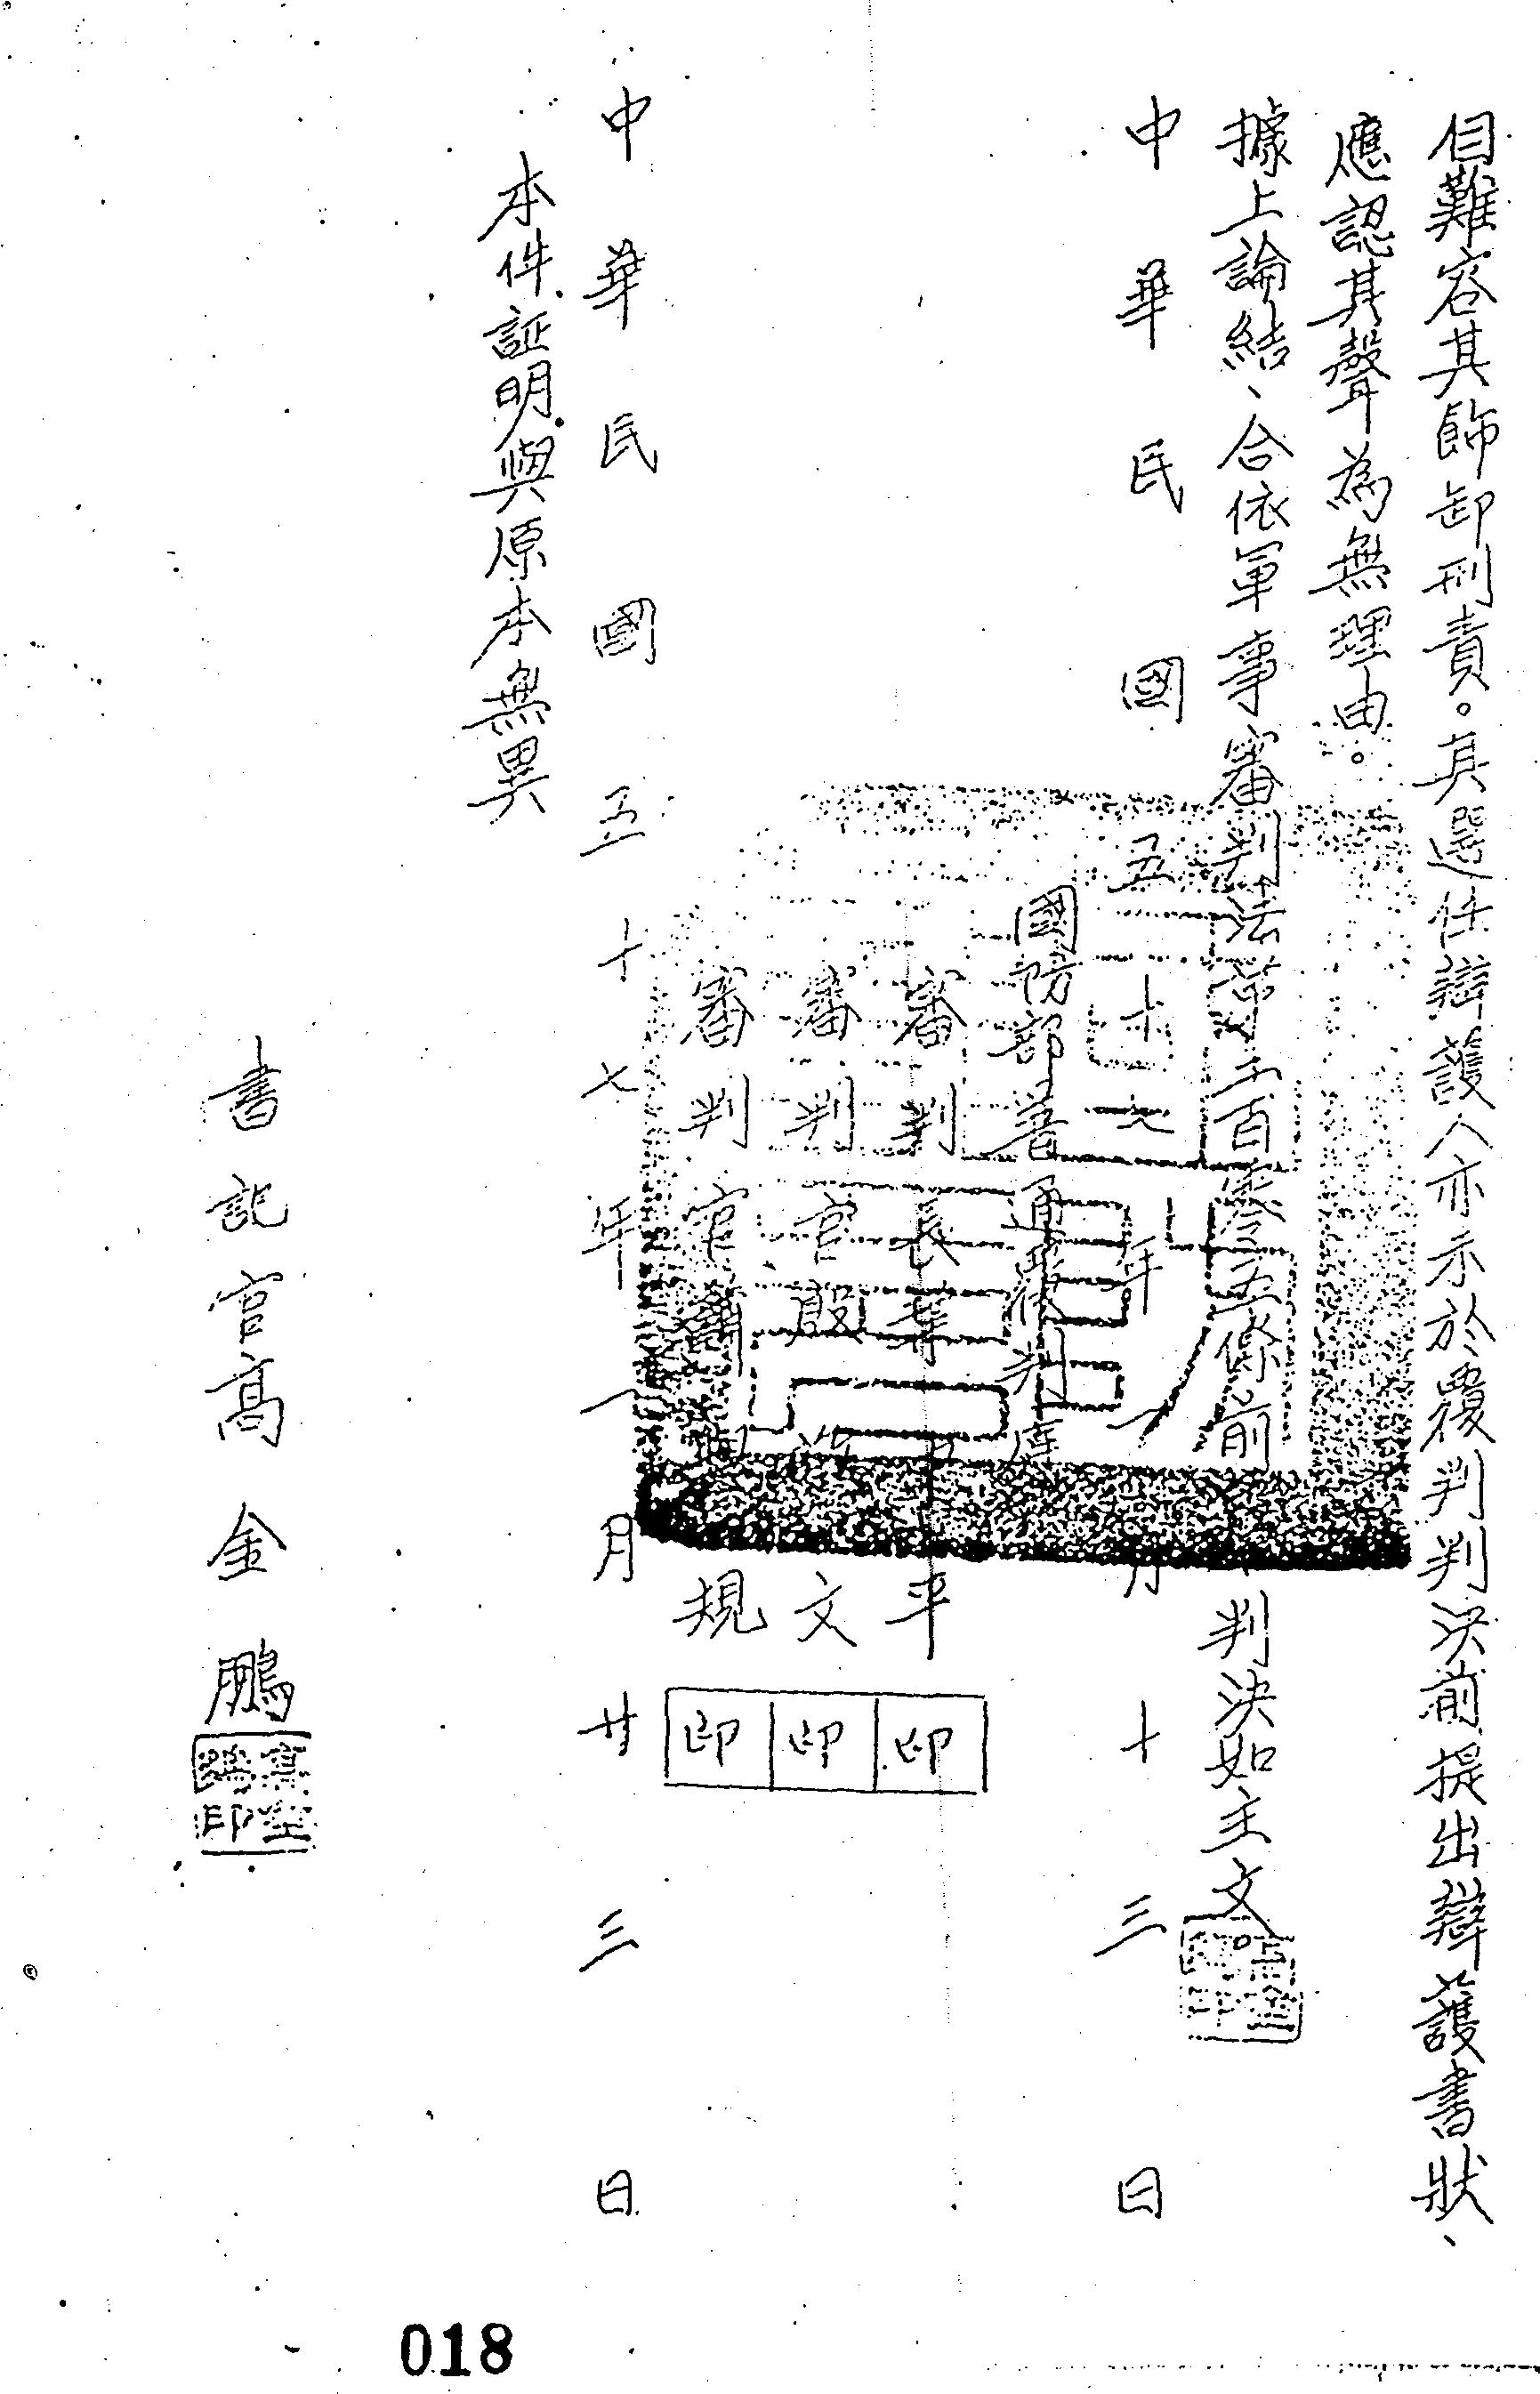 自難容其飾卸刑責。其選任辯護人亦未於覆判判決前提出辯護書狀、
應認其聲為無理由。
據上論結、合依軍事審判法第二百零五條前判決如主文。
中華民國五十七年一月十三日
國防部普通覆判庭
審判長平
審判官殷文
審判官劉規
印
印
印
中華民國五十七年一月廿三日
本件証明與原本無異
書記官高金鵬
018